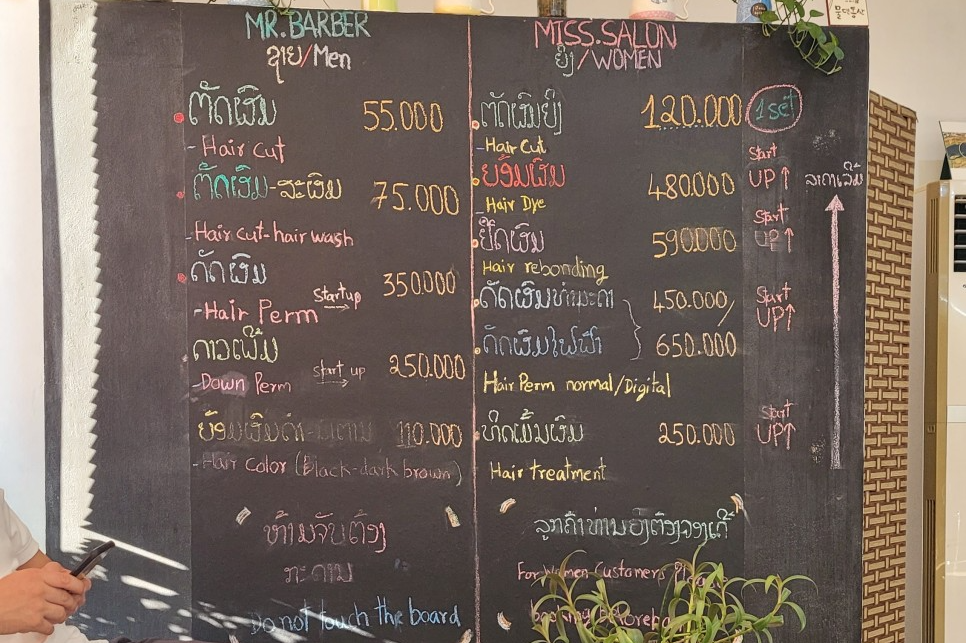 MR. BARBER
ຊາຍ/Men
ຕັດຜົມ 55.000
- Hair cut
ຕັດຜົມ-ສະຜົມ 75.000
- Hair cut-hair wash
ດັດຜົມ 350.000
- Hair Perm Start up
ດາວເພີ້ມ 250.000
- Down Perm start up
ຍ້ອມຜົມດຳ 110.000
- Hair color (Black-dark brown)
ຫ້າມຈັບຕ້ອງ
ກະດານ
Do not touch the board
MISS.SALON
ຍິງ/WOMEN
ຕັດຜົມຍິງ 120.000 1 set
- Hair Cut
ຍ້ອມຜົມ 480.000 Start UP↑
Hair Dye
ຢືດຜົມ 590.000 Start UP↑
Hair rebonding
ດັດຜົມທຳມະດາ 450.000/ Start UP↑
ດັດຜົມໄຟຟ້າ 650.000
Hair Perm normal/Digital
250.000 Start UP↑
Hair treatment
ລູກຄ້າ
For Women Customers